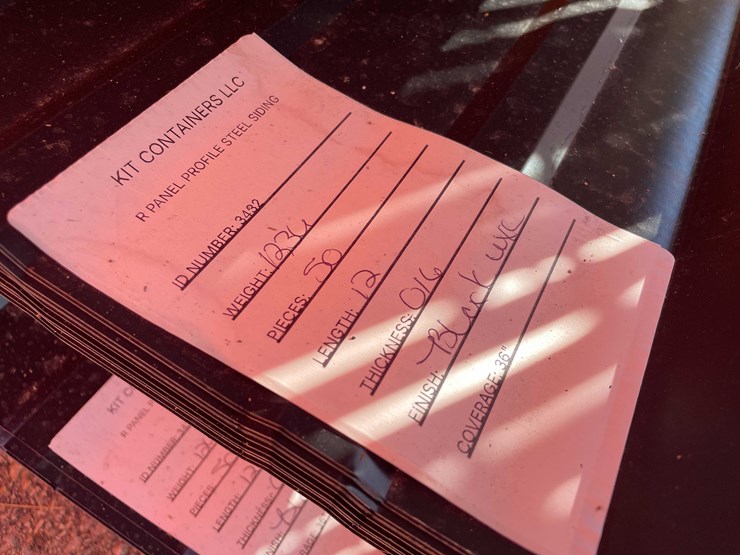 KIT CONTAINERS LLC
R PANEL PROFILE STEEL SIDING
ID NUMBER: 3482
WEIGHT: 1234
PIECES: 50
LENGTH: 12
THICKNESS: 016
FINISH: Black
COVERAGE: 36"
KIT C
R PANEL
ID NUMBER:
WEIGHT:
PIECES:
LENGTH: 12
THICKNESS: